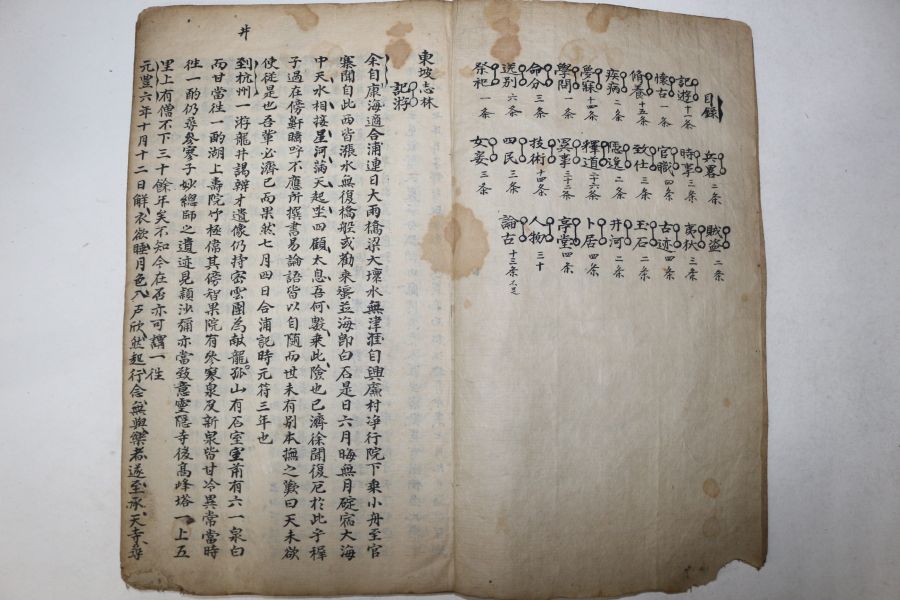 目錄 兵畧二条 賊盜二条
記遊十一条 時事三条 夷狄三条
懷古一条 官職四条 古迹四条
脩養十五条 致仕三条 玉石二条
疾病二条 隱逸二条 井河二条
夢寐十一条 釋道二十六条 卜居四条
學問一条 異事三十二条 亭堂四条
命分三条 技術十四条 人物三十
送别六条 四民三条 論古十三条
祭祀一条 女妾三条
東坡志林
記游
余自康海適合浦連日大雨橋梁大壞水無津涯自興廉村净行院下乗小舟至官
寨聞自此西皆漲水無復橋舩或勸乗蜑並海即白石是日六月晦無月碇宿大海
中天水相接星河滿天起坐四顧太息吾何數乗此險也已濟徐聞復厄於此乎稚
子過在傍鼾睡呼不應所撰書易論語皆以自随而世未有别本撫之歎曰天未欲
使従是也吾輩必濟已而果然七月四日合浦記時元符三年也
到杭州一游龍井謁辨才遺像仍持密雲團為献龍孤山有石室室前有六一泉白
而甘當徃一酌湖上壽院竹極偉其傍智果院有參寥泉及新泉皆甘冷異常當時
徃一酌仍尋參寥子妙總師之遺迹見頴沙彌亦當致意靈隱寺後高峰塔一上五
里上有僧不下三十餘年矣不知今在否亦可謂一徃
元豐六年十月十二日解衣欲睡月色入戶欣然起行念無與樂者遂至承天寺尋
井